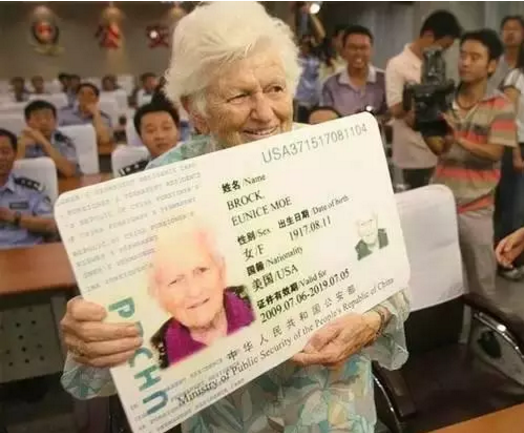 公安
USA371517081104
姓名/Name
BROCK,
EUNICE MOE
性别/Sex 出生日期/Date of birth
女/F 1917.08.11
国籍/Nationality
美国/USA
证件有效期/Valid for
2009.07.06-2019.07.05
中华人民共和国公安部
Ministry of Public Security of the People's Republic of China
PRCHN